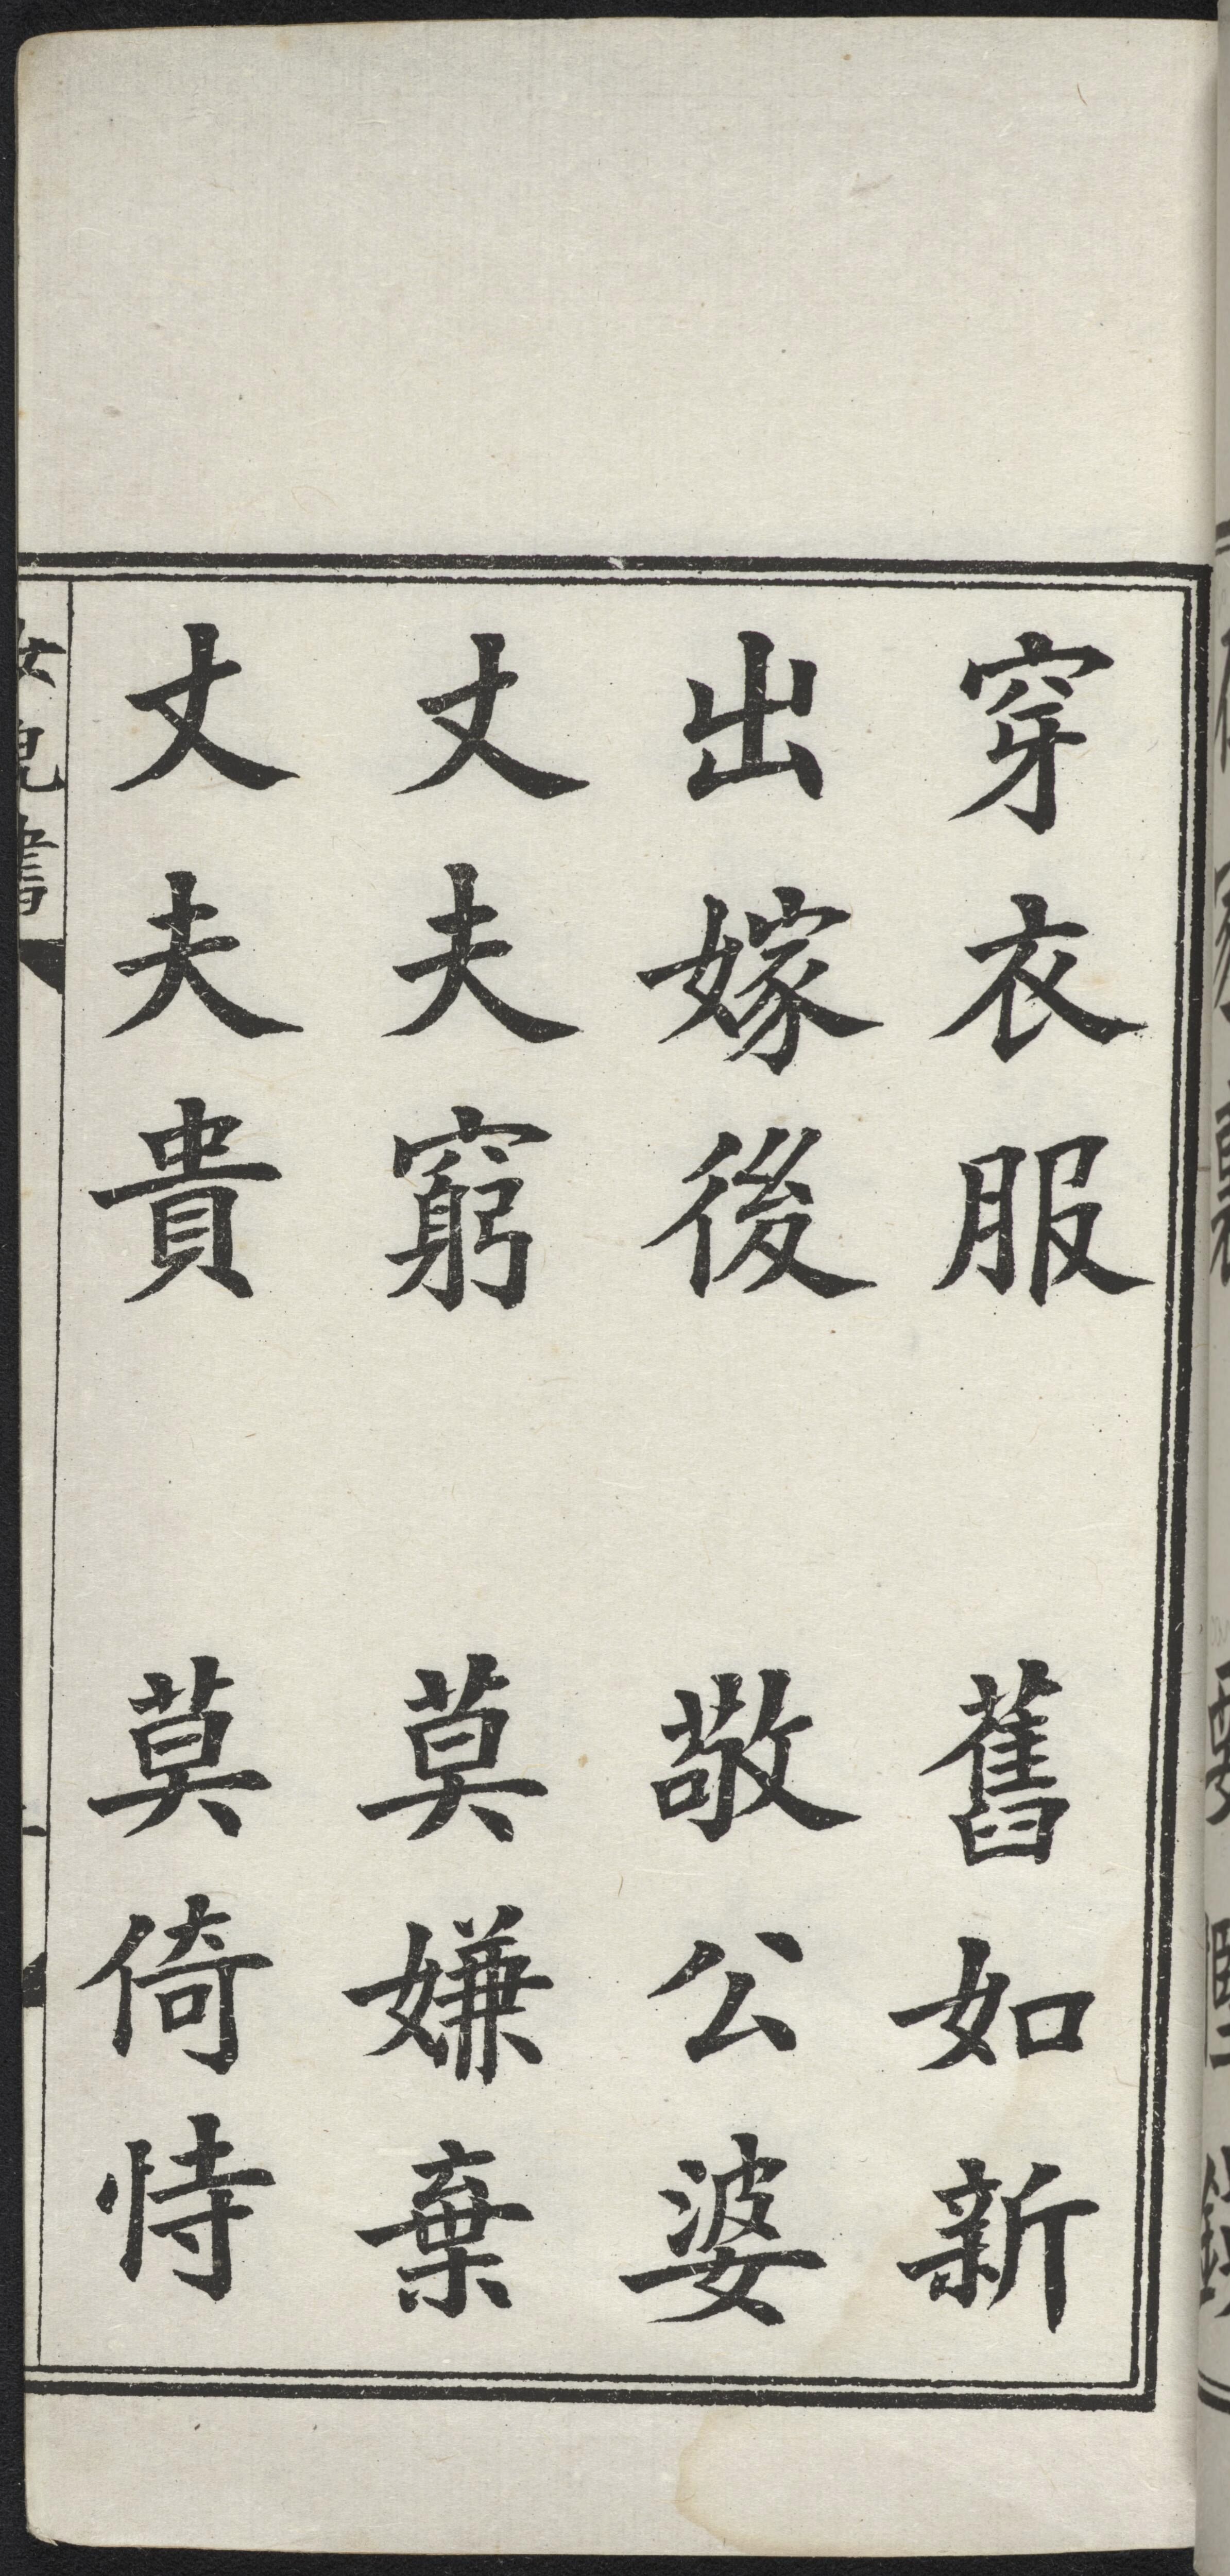 穿衣服　舊如新
出嫁後　敬公婆
丈夫窮　莫嫌棄
丈夫貴　莫倚恃
女兒書